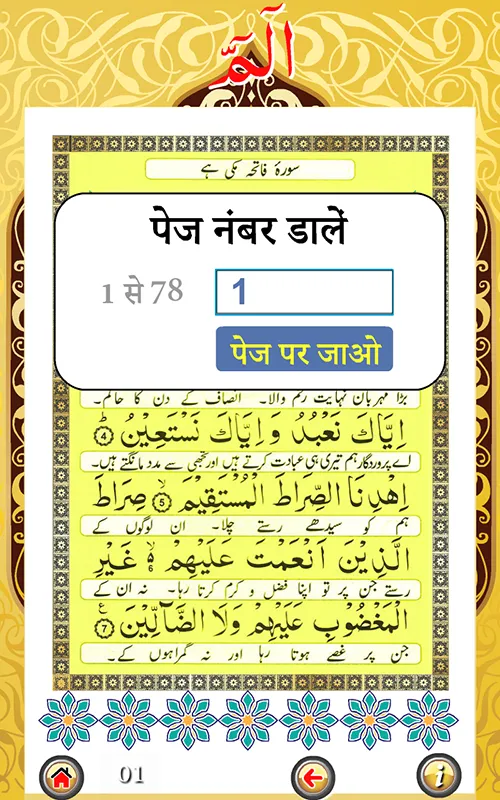 الٓمّٓ
سورۂ فاتحہ مکی ہے
पेज नंबर डालें
1 से 78
1
पेज पर जाओ
بڑا مہربان نہایت رحم والا۔ انصاف کے دن کا حاکم۔
اِيَّاكَ نَعْبُدُ وَ اِيَّاكَ نَسْتَعِيْنُ ۴
اے پروردگار ہم تیری ہی عبادت کرتے ہیں اور تجھی سے مدد مانگتے ہیں۔
اِهْدِنَا الصِّرَاطَ الْمُسْتَقِيْمَ ۵ صِرَاطَ
ہم کو سیدھے رستے چلا۔ ان لوگوں کے
الَّذِيْنَ اَنْعَمْتَ عَلَيْهِمْ ۶ غَيْرِ
رستے جن پر تو اپنا فضل و کرم کرتا رہا۔ نہ ان کے
الْمَغْضُوْبِ عَلَيْهِمْ وَلَا الضَّآلِّيْنَ ۷
جن پر غصے ہوتا رہا اور نہ گمراہوں کے۔
01
i